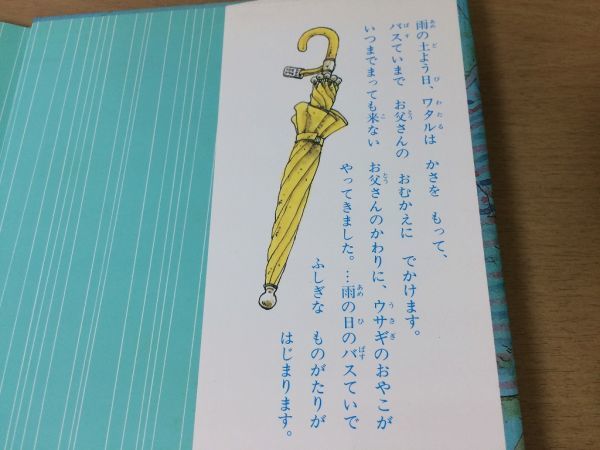 雨の土よう日、ワタルは　かさを　もって、
バスていまで　お父さんの　おむかえに　でかけます。
いつまでまっても来ない　お父さんのかわりに、ウサギのおやこが
やってきました。…雨の日のバスていで
ふしぎな　ものがたりが
はじまります。